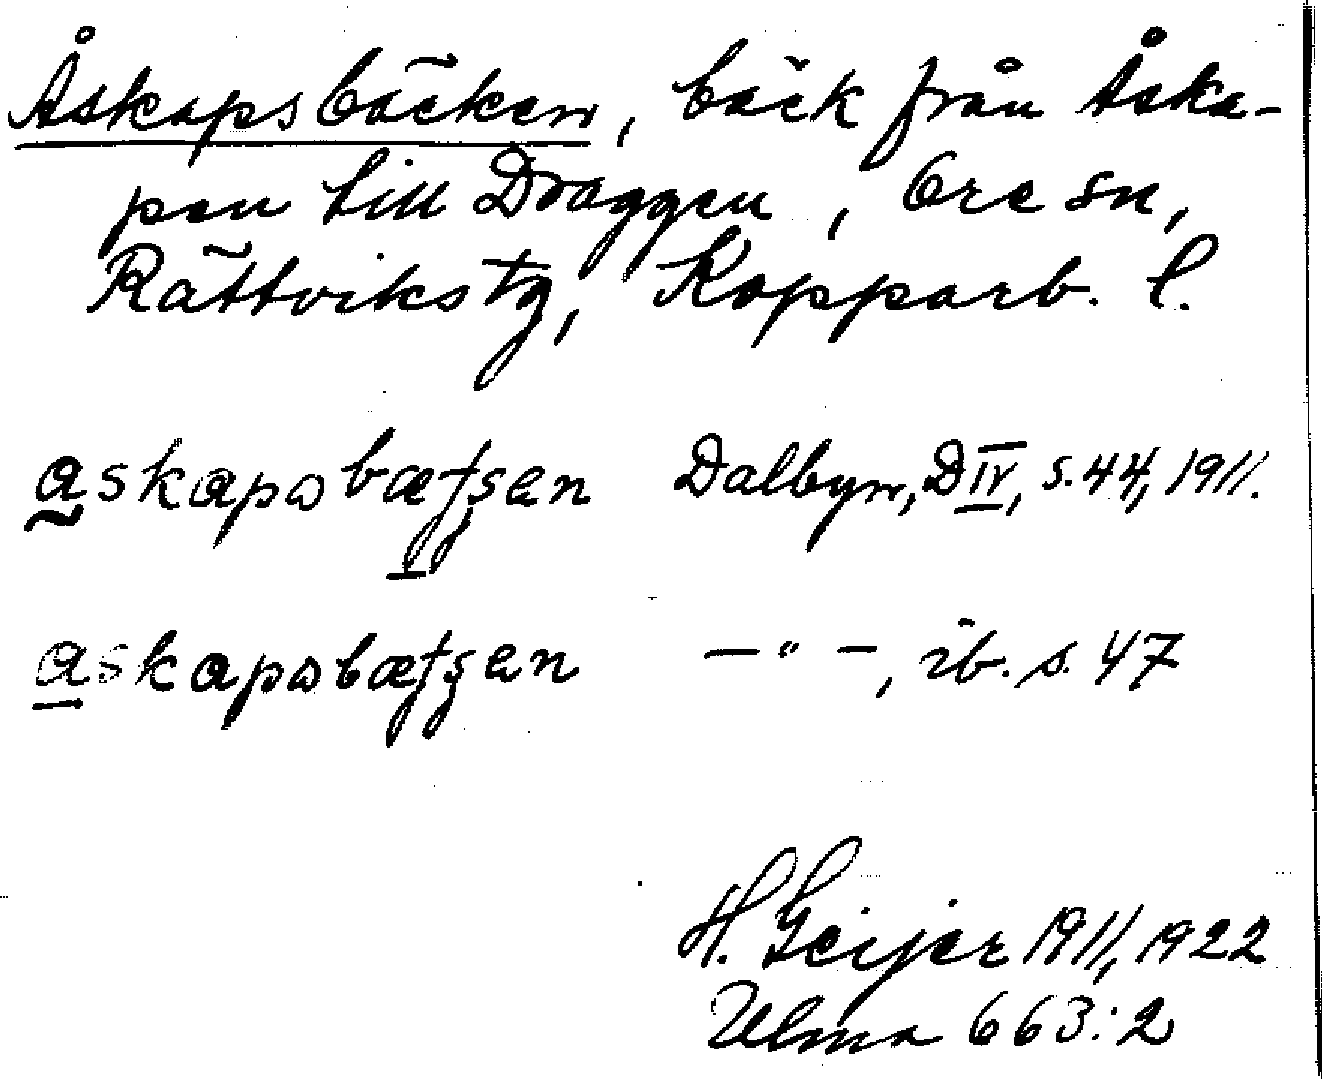 Åskapsbäcken, bäck från Åska-
pen till Draggen, Ore sn,
Rättviks tg, Kopparb. l.
askapsbætʂen Dalbyn, D IV, s. 44, 1911.
askapsbætʂen — " —, ib. s. 47
H. Geijer 1911, 1922
Ulma 663:2